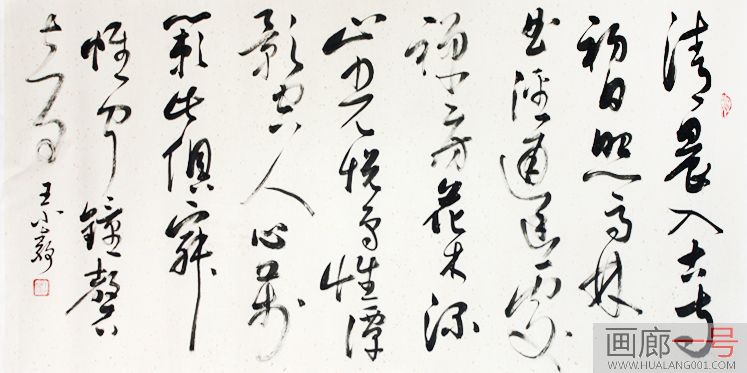 清晨入古寺
初日照高林
曲徑通幽處
禪房花木深
山光悅鳥性潭
影空人心萬
籟此俱寂
惟聞鐘磬
音
王小
画廊一号
WWW.HUALANG001.COM